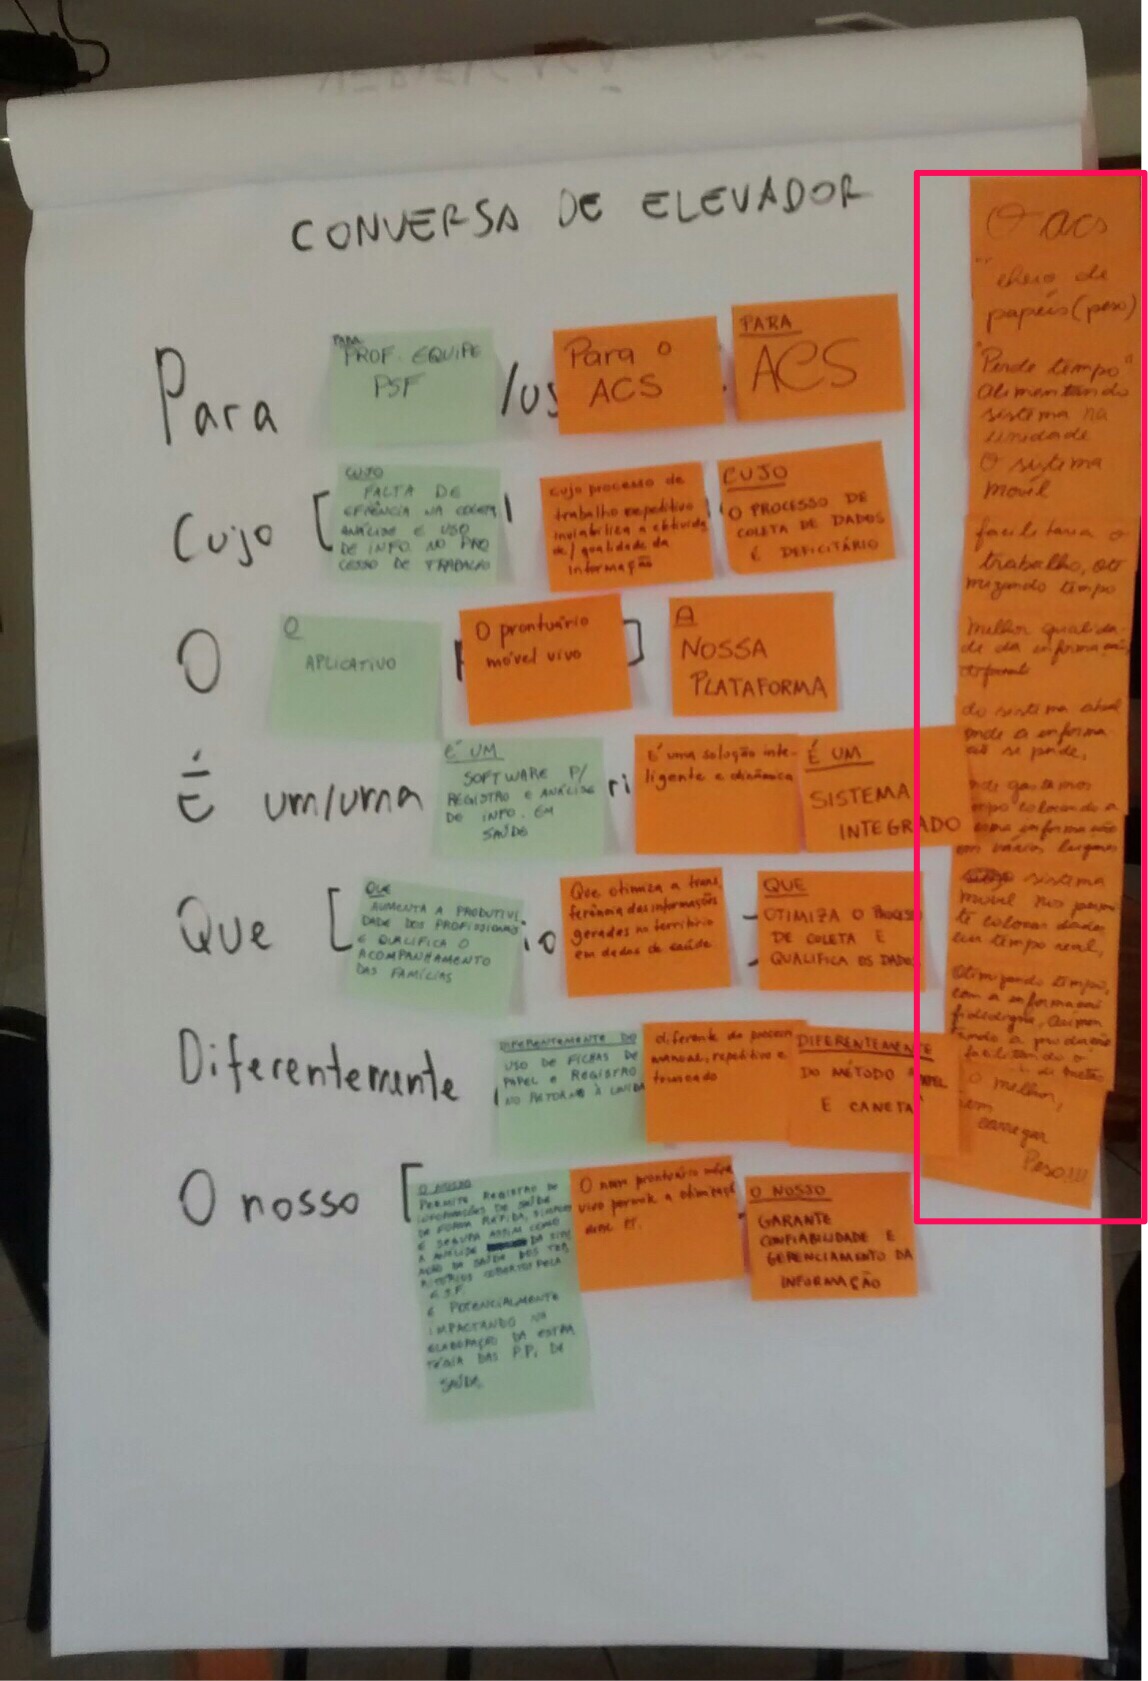 CONVERSA DE ELEVADOR
Para
PARA
PROF. EQUIPE
PSF
/us
Para o
ACS
PARA
ACS
Cujo [
CUJO
FALTA DE
EFICIÊNCIA NA COLETA
ANÁLISE E USO
DE INFO. NO PRO
CESSO DE TRABALHO
cujo processo de
trabalho repetitivo
inviabiliza a
qualidade da
informação
CUJO
O PROCESSO DE
COLETA DE DADOS
É DEFICITÁRIO
O
O
APLICATIVO
O prontuário
móvel vivo
]
A
NOSSA
PLATAFORMA
É um/uma
É UM
SOFTWARE P/
REGISTRO E ANÁLISE
DE INFO. EM
SAÚDE
ri
É uma solução inte-
ligente e dinâmica
É UM
SISTEMA
INTEGRADO
Que [
QUE
AUMENTA A PRODUTIVI
DADE DOS PROFISSIONAIS
E QUALIFICA O
ACOMPANHAMENTO
DAS FAMÍLIAS
io
Que otimiza a trans
ferência das informações
geradas no território
em dados de saúde
QUE
OTIMIZA O PROCESSO
DE COLETA E
QUALIFICA OS DADOS
Diferentemente
DIFERENTEMENTE DO
USO DE FICHAS DE
PAPEL E REGISTRO
NO RETORNO À UNIDA
diferente do processo
manual, repetitivo e
truncado
DIFERENTEMENTE
DO MÉTODO PAPEL
E CANETA
O nosso [
O NOSSO
PERMITE REGISTRO DE
INFORMAÇÕES DE SAÚDE
DE FORMA RÁPIDA, SIMPLES
E SEGURA ASSIM COMO
A ANÁLISE DA SITU
AÇÃO DA SAÚDE DOS TER
RITÓRIOS COBERTOS PELA
E.S.F.
E POTENCIALMENTE
IMPACTANDO NA
ELABORAÇÃO DA ESTRA
TÉGIA DAS P.P. DE
SAÚDE
O novo prontuário móvel
vivo permite a otimização
O NOSSO
GARANTE
CONFIABILIDADE E
GERENCIAMENTO DA
INFORMAÇÃO
O acs
"cheio de
papéis (peso)
"Perde tempo"
alimentando
sistema na
unidade
O sistema
movel
facilitaria o
trabalho, oti
mizando tempo
melhor qualida-
de da informação,
do sistema atual
onde a informa
ção se perde,
onde gastamos
tempo colocando a
mesma informação
em vários lugares
sistema
movel nos permi
te colocar dados
em tempo real,
Otimizando tempo,
com a informação
fidedigna, aumen
tando a produção
facilitando o
de metas
o melhor,
sem
carregar
Peso!!!